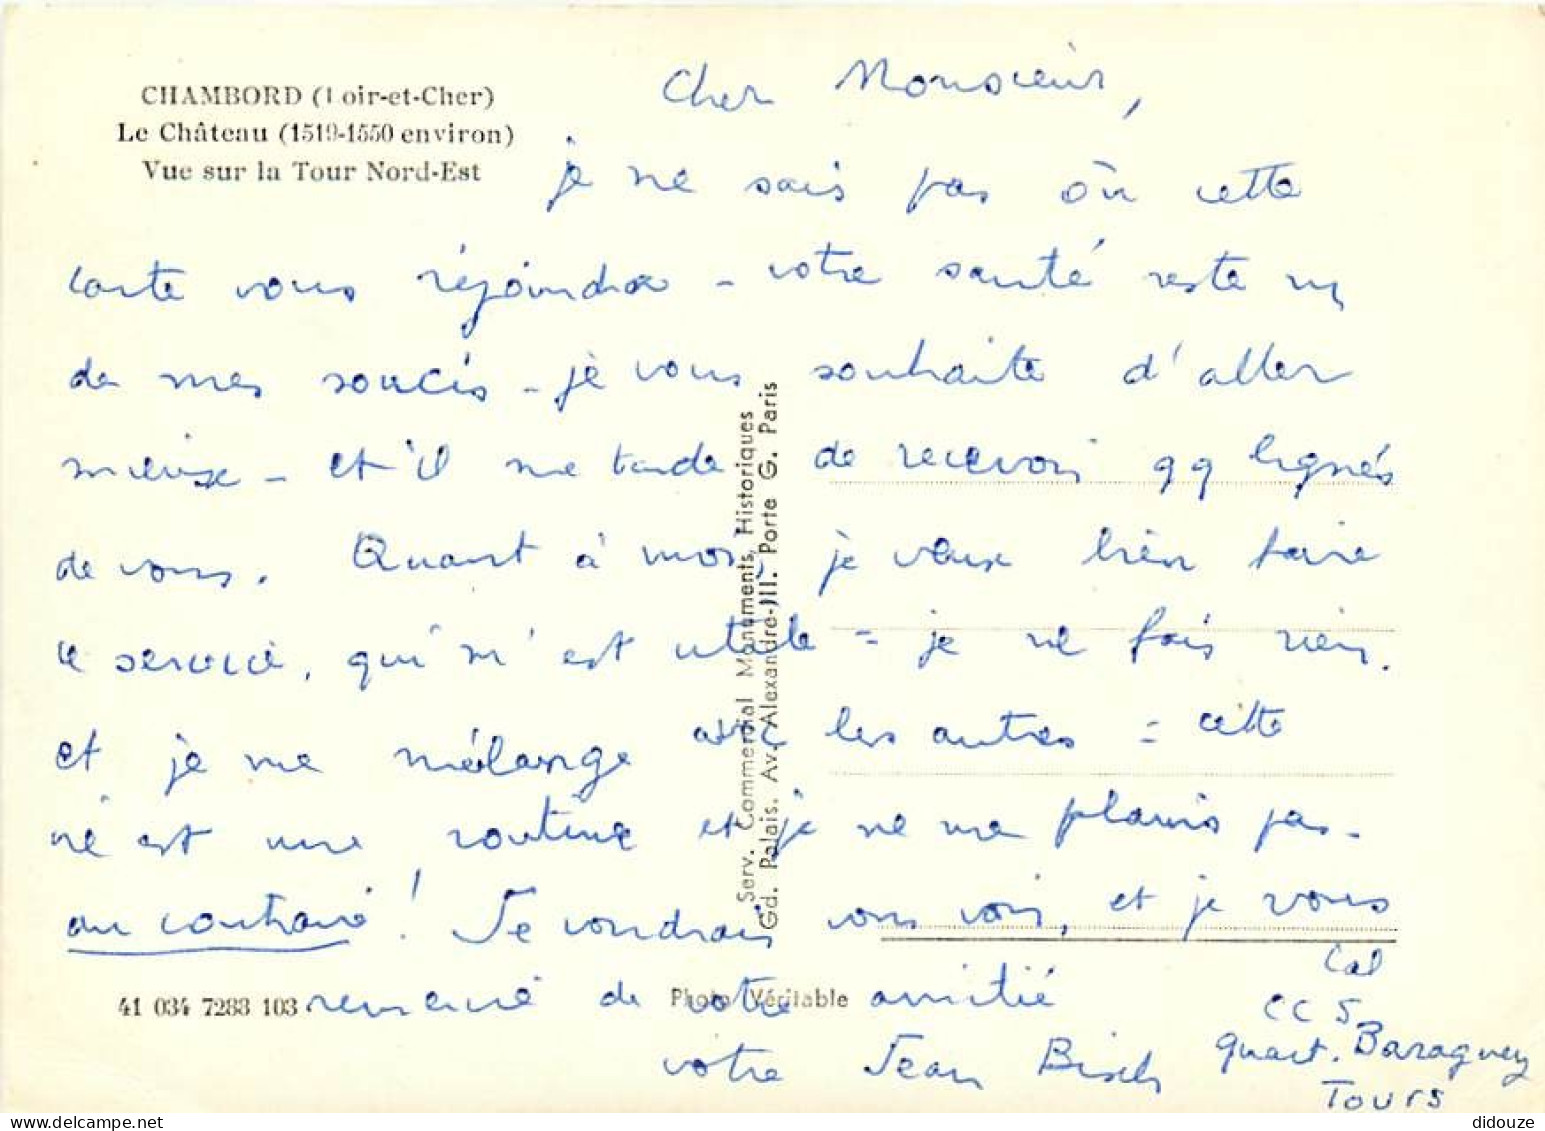 CHAMBORD (Loir-et-Cher)
Le Château (1519-1550 environ)
Vue sur la Tour Nord-Est
Cher Monsieur,
je ne sais pas où cette
carte vous rejoindra - votre santé reste un
de mes soucis - je vous souhaite d'aller
mieux - et il me tarde de recevoir qq lignes
de vous. Quant à moi, je veux bien faire
ce service, qui m'est utile = je ne fais rien.
et je me mélange avec les autres = cette
vie est une routine et je ne me plains pas -
au contraire ! Je voudrais vous voir, et je vous
remercie de votre amitié
votre Jean Bisch
Cal
CC 5
Quart. Baraguey
Tours
41 034 7283 103
Photo Véritable
Serv. Commercial Monuments Historiques
Gd. Palais. Av. Alexandre-III. Porte G. Paris
didouze on www.delcampe.net